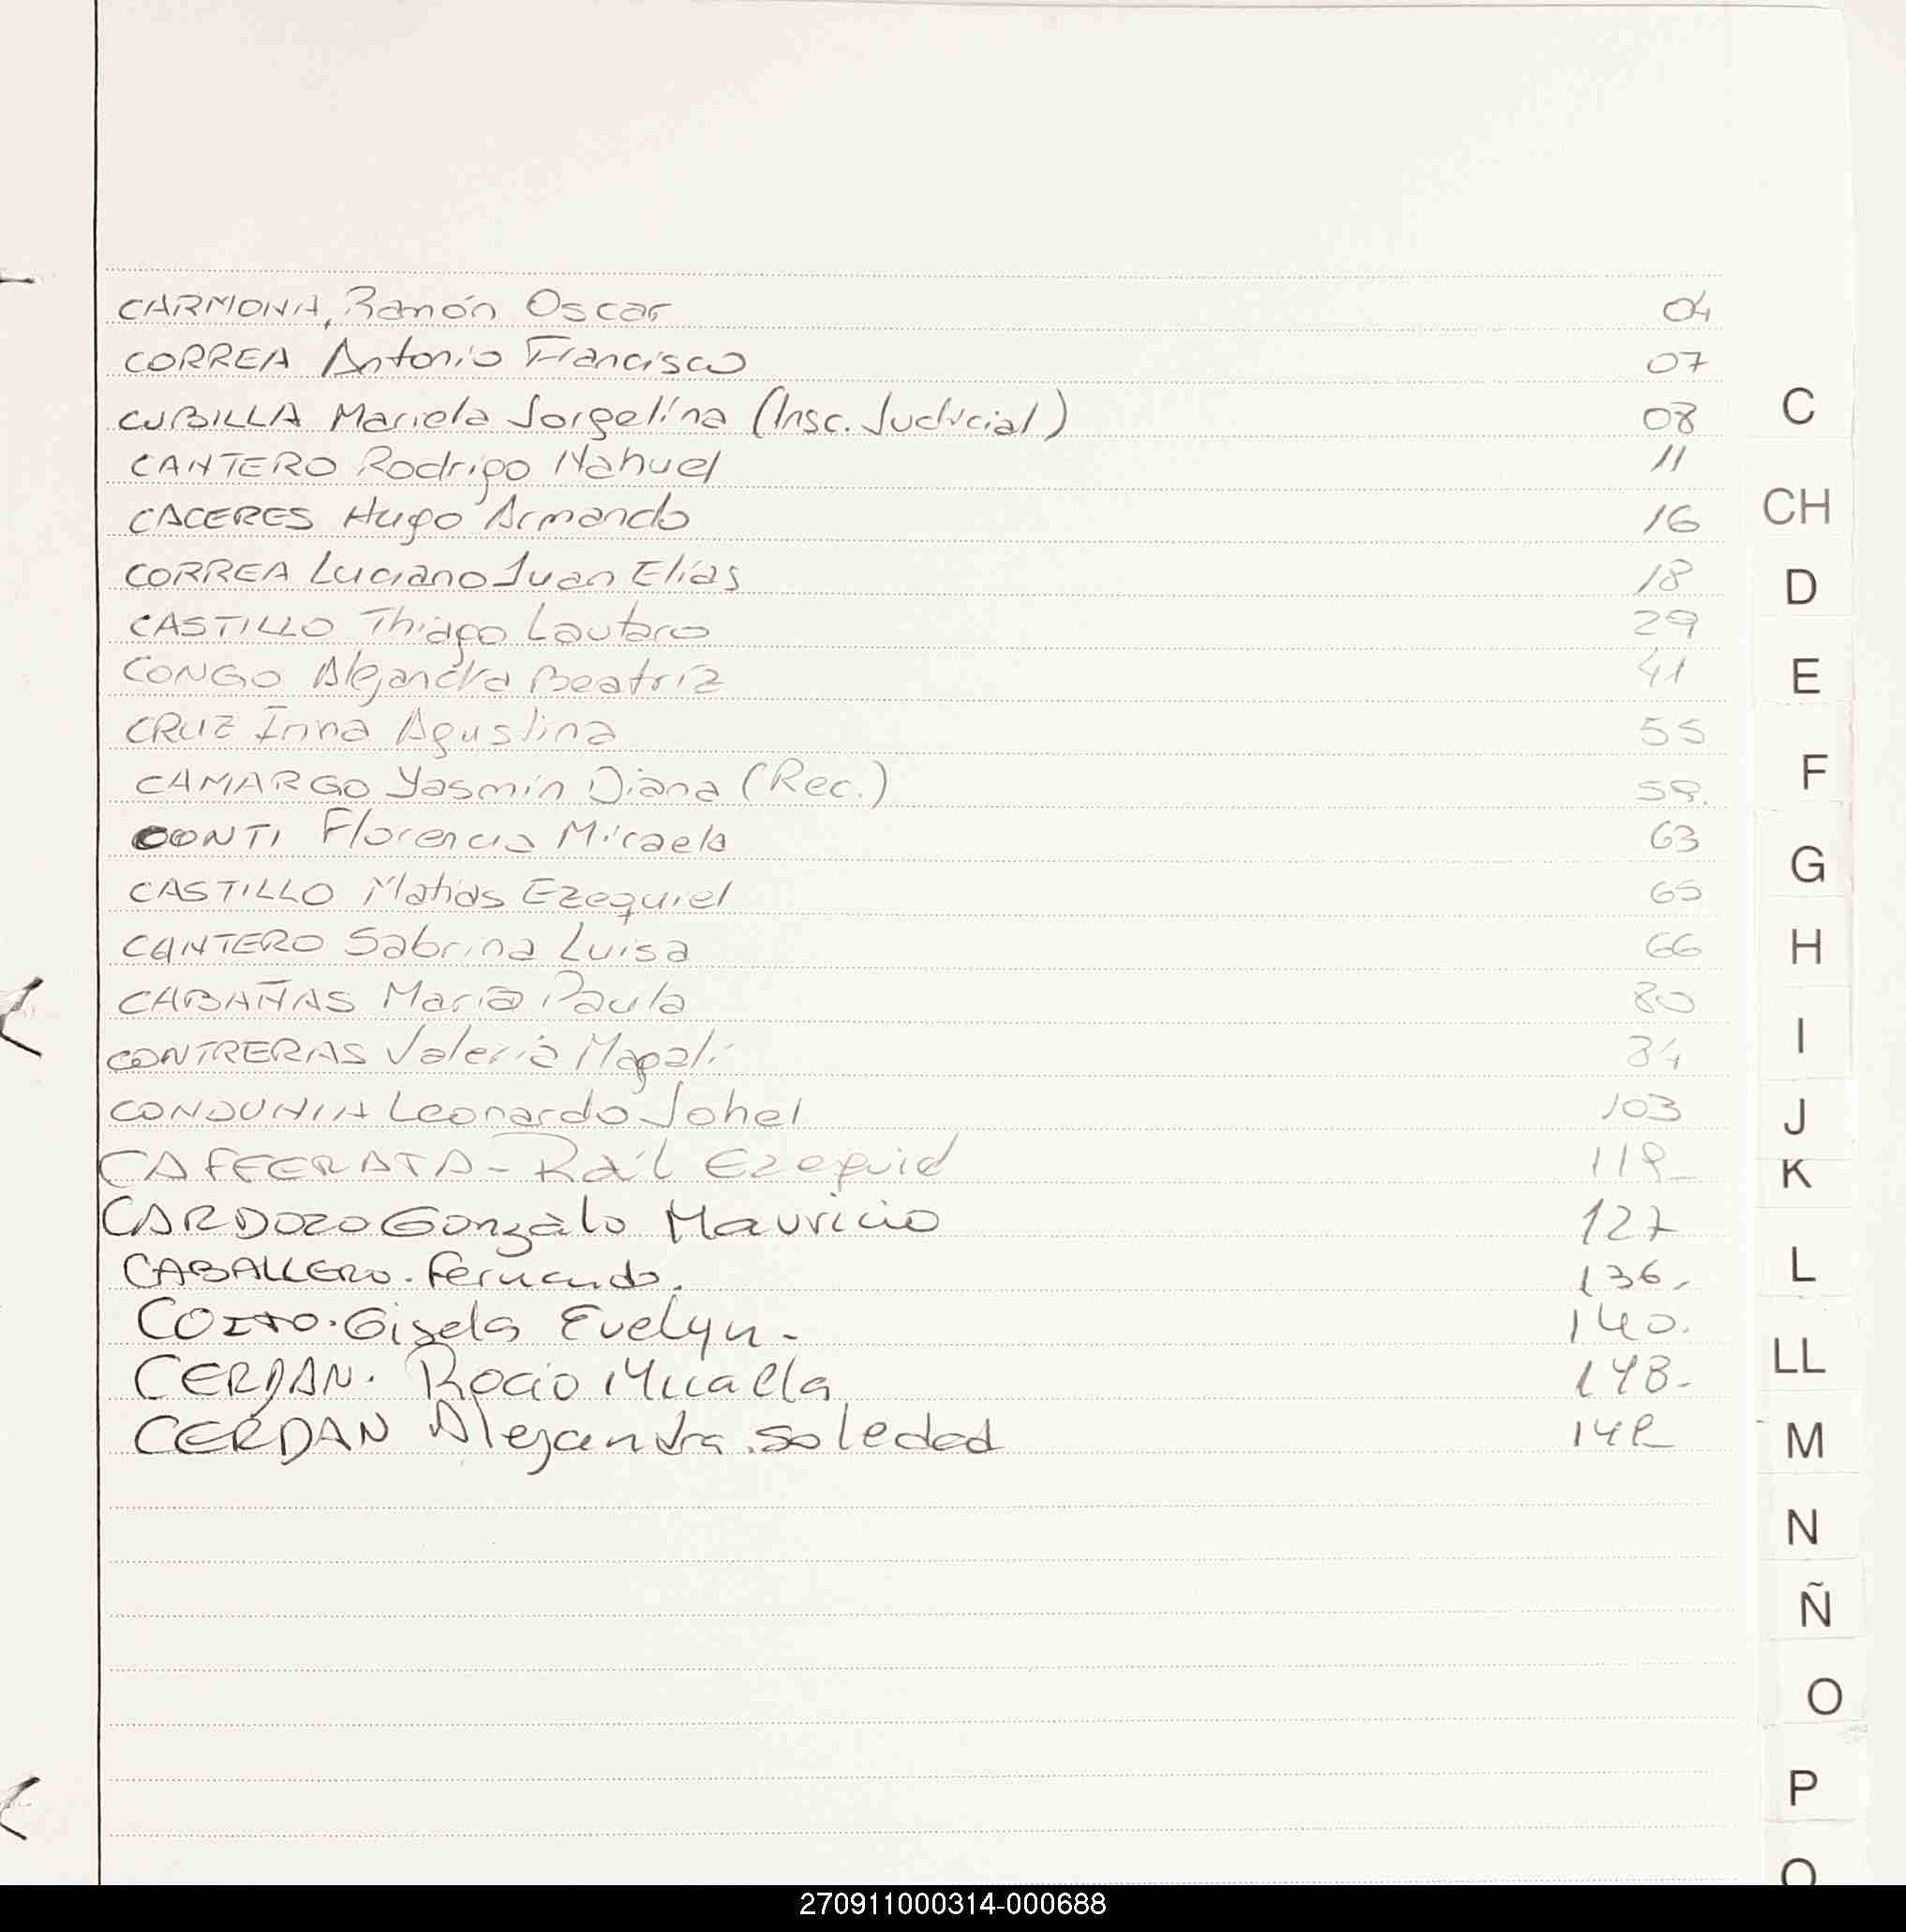 CARMONA, Ramón Oscar 04
CORREA Antonio Francisco 07
CUBILLA Mariela Jorgelina (Insc. Judicial) 08
CANTERO Rodrigo Nahuel 11
CACERES Hugo Armando 16
CORREA Luciano Juan Elías 18
CASTILLO Thiago Lautaro 29
CONGO Alejandra Beatríz 41
CRUZ Inna Agustina 55
CAMARGO Yasmín Diana (Rec.)
CONTI Florencia Micaela 63
CASTILLO Matías Ezequiel 65
CANTERO Sabrina Luisa 66
CABAÑAS María Paula 80
CONTRERAS Valeria Magalí 84
Leonardo Johel 103
CAFFERATA - Ezequiel
CARDOZO Gonzalo Mauricio 127
CABALLERO. Fernando. 136.
Gisela Evelyn - 140.
CERDAN. Rocio Micaela 148-
CERDAN Alejandra Soledad
C
CH
D
E
F
G
H
I
J
K
L
LL
M
N
Ñ
O
P
270911000314-000688